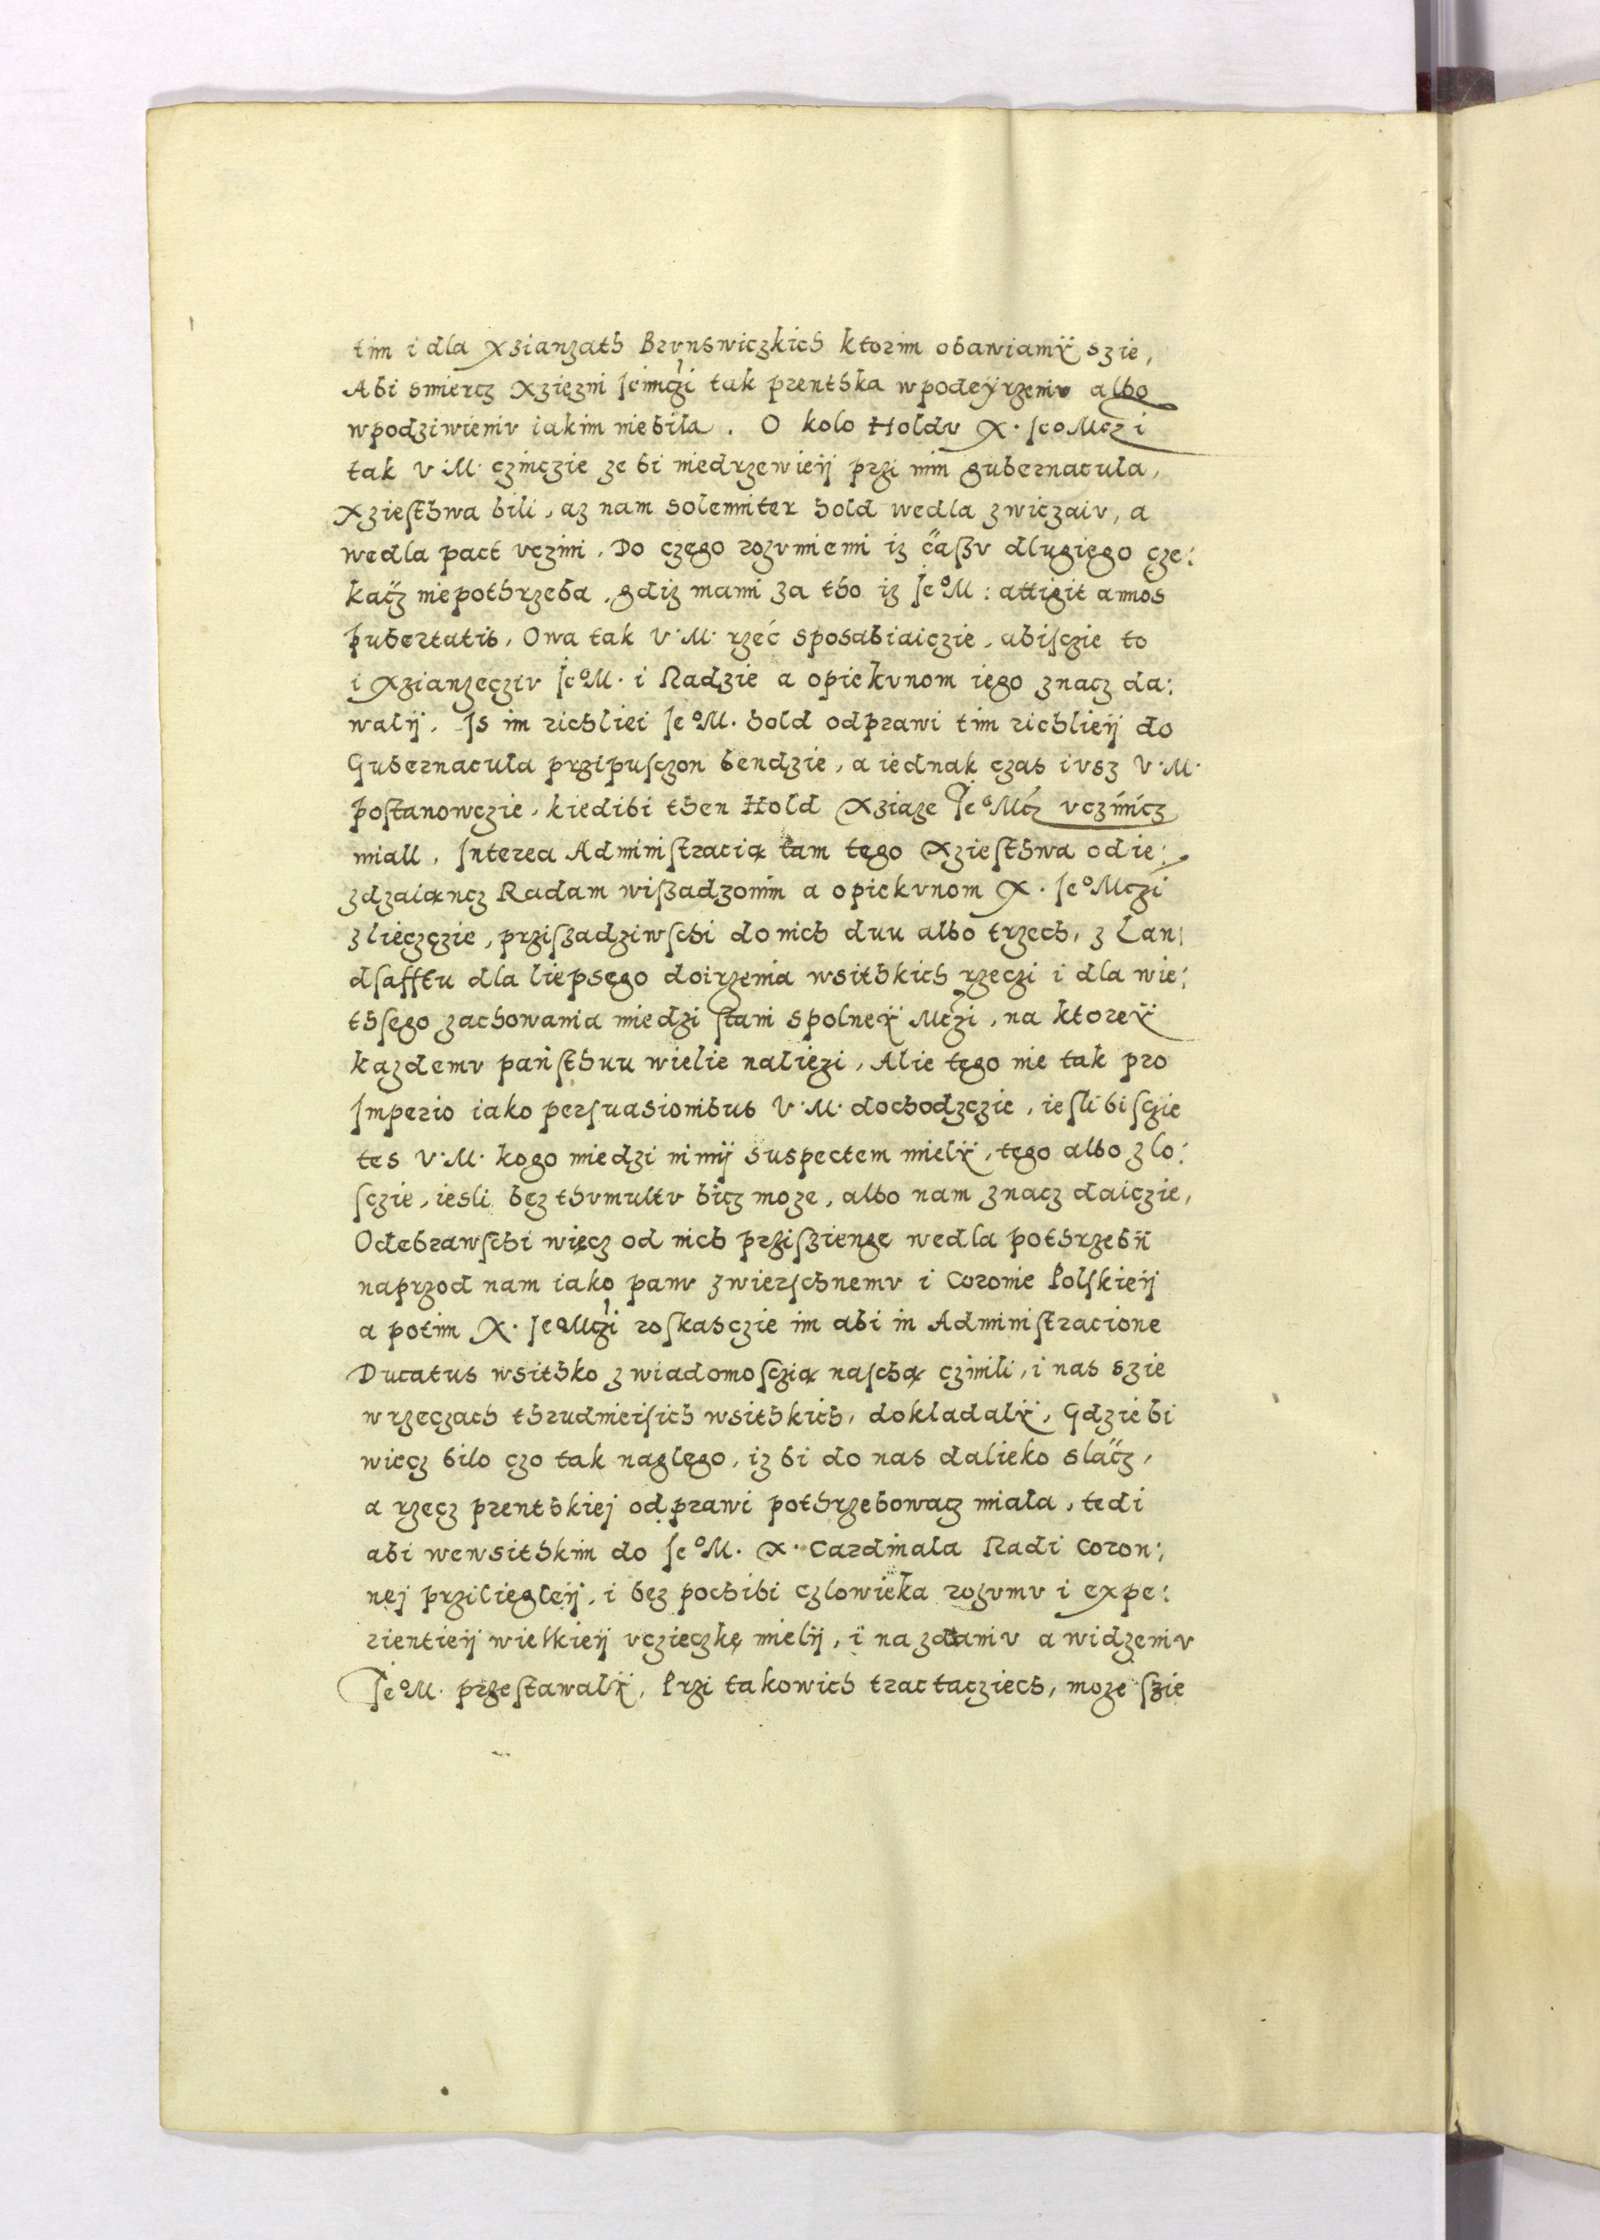 tim i dla Xzianzath Brvnswiczkich ktorim obawiamÿ szie,
Abi smiercz Xziȩzni Jeimczi tak prentkha wpodeÿrzeniv albo
wpodziwieniv iakim niebiła. O kolo Holdv X. JeoMczi
tak V M. czińczie ze bi niedrzewieÿ przi nim gubernacula,
Xziesthwa bili, az nam solenniter hold wedla zwiczaiv, a
wedla pact vczini. Do czego rozvmiemi iz čaßv dlugiego cze:
kacz niepothrzeba, gdiz mami za tho iz JeoM: attigit annos
pubertatis, Owa tak V.M. rzec sposabiaiczie, abisczie to
i Xzianzecziv JeoM. i Radzie a opiekvnom iego znacz da:
walÿ. Is im richliei JeoM. hold odprawi tim richlieÿ do
Gubernacula przipusczon bendzie, a iednak czas ivsz V.M.
postanowczie, kiedibi then Hold Xziaze JeoMcz vczinicz
miall, Interea Administracią tam tego Xziesthwa odie:
zdzaiąncz Radam wißadzonim a opiekvnom X. JeoMczi
zlieczczie, przißadziwschi do nich duu albo trzech, z Lan:
dsafftu dla liepsego doirzenia wsithkich rzeczi i dla wie:
thsego zachowania miedzi stani spolneÿ Mczi, na ktoreÿ
kazdemv państhuu wielie naliezi, Alie tego nie tak pro
Imperio iako persuasionibus V.M. dochodzczie, iesli bisczie
tes V.M. kogo miedzi nimÿ suspectem mielÿ, tego albo zlo:
sczie, iesli bez thvmultv bicz moze, albo nam znacz daiczie,
Odebrawschi wiȩcz od nich przißienge wedla pothrzebÿ
naprzod nam iako panv zwierschnemv i Coronie Polskieÿ
a potim X. JeoMczi roskasczie im abi in Administracione
Ducatus wsithko z wiadomosczią naschą czinili, i nas szie
w rzeczach thrudnieisich wsithkich, dokladalÿ, Gdzie bi
wiecz bilo czo tak naglego, iz bi do nas dalieko slacz,
a rzecz prenthkiej odprawi pothrzebowacz miala, tedi
abi wewsithkim do JeoM. X. Cardinala Radi Coron:
nej przilieglÿ, i bez pochibi czlowieka rozvmv i expe:
rientieÿ wielkieÿ vczieczkȩ mielÿ, i na zdaniv a widzeniv
JeoM. przestawalÿ, Przi takowich tractacziech, moze szie